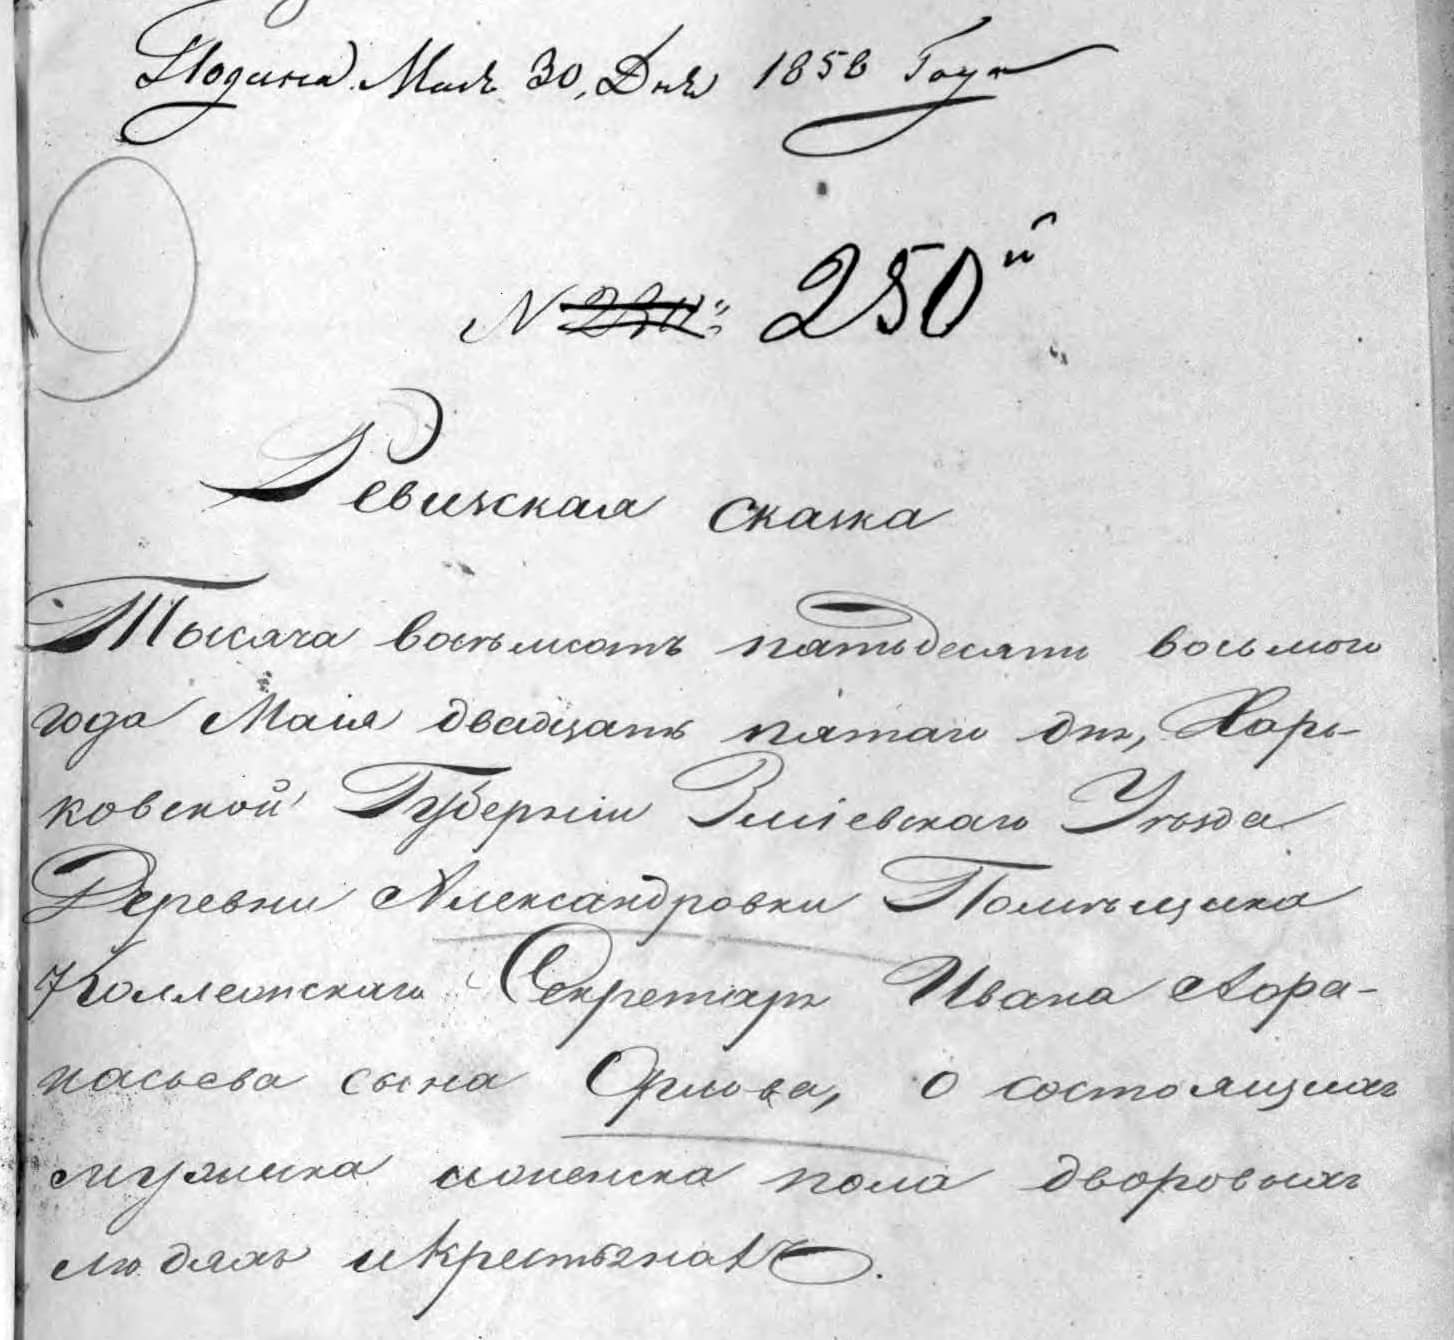 Подана Мая 30, Дня 1858 Года
N 250й
Ревизская сказка
Тысяча восемьсотъ пятьдесятъ восьмого
года Маія двадцать пятаго дня, Харь-
ковской Губерніи Зміевскаго Уѣзда
Деревни Александровки Помѣщика
Коллежскаго Секретаря Ивана Афа-
насьева сына Орлова, о состоящихъ
мужеска и женска пола дворовыхъ
людяхъ и крестьянахъ.